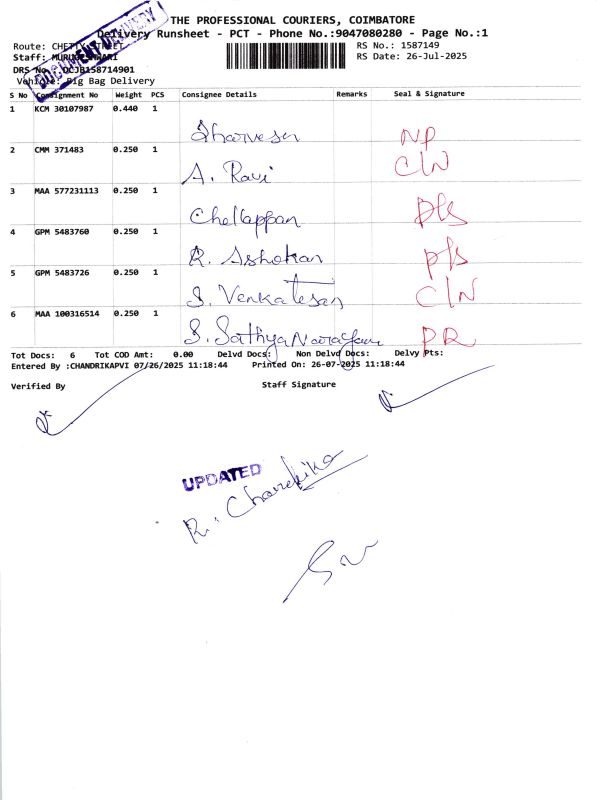 THE PROFESSIONAL COURIERS, COIMBATORE
Delivery Runsheet - PCT - Phone No.:9047080280 - Page No.:1
DOCUMENT DELIVERY
Route: CHETTY STREET RS No.: 1587149
Staff: MURUGESHWARI RS Date: 26-Jul-2025
DRS No.: DCJB158714901
Vehicle: Big Bag Delivery
S No Consignment No Weight PCS Consignee Details Remarks Seal & Signature
1 KCM 30107987 0.440 1
NP
2 CMM 371483 0.250 1
A. Ravi CLN
3 MAA 577231113 0.250 1
Chellappan pls
4 GPM 5483760 0.250 1
R. Ashokan pls
5 GPM 5483726 0.250 1
S. Venkatesan CLN
6 MAA 100316514 0.250 1
S. Sathya Narayanan PR
Tot Docs: 6 Tot COD Amt: 0.00 Delvd Docs: Non Delvd Docs: Delvy Pts:
Entered By :CHANDRIKAPVI 07/26/2025 11:18:44 Printed On: 26-07-2025 11:18:44
Verified By Staff Signature
UPDATED
R. Chandrika